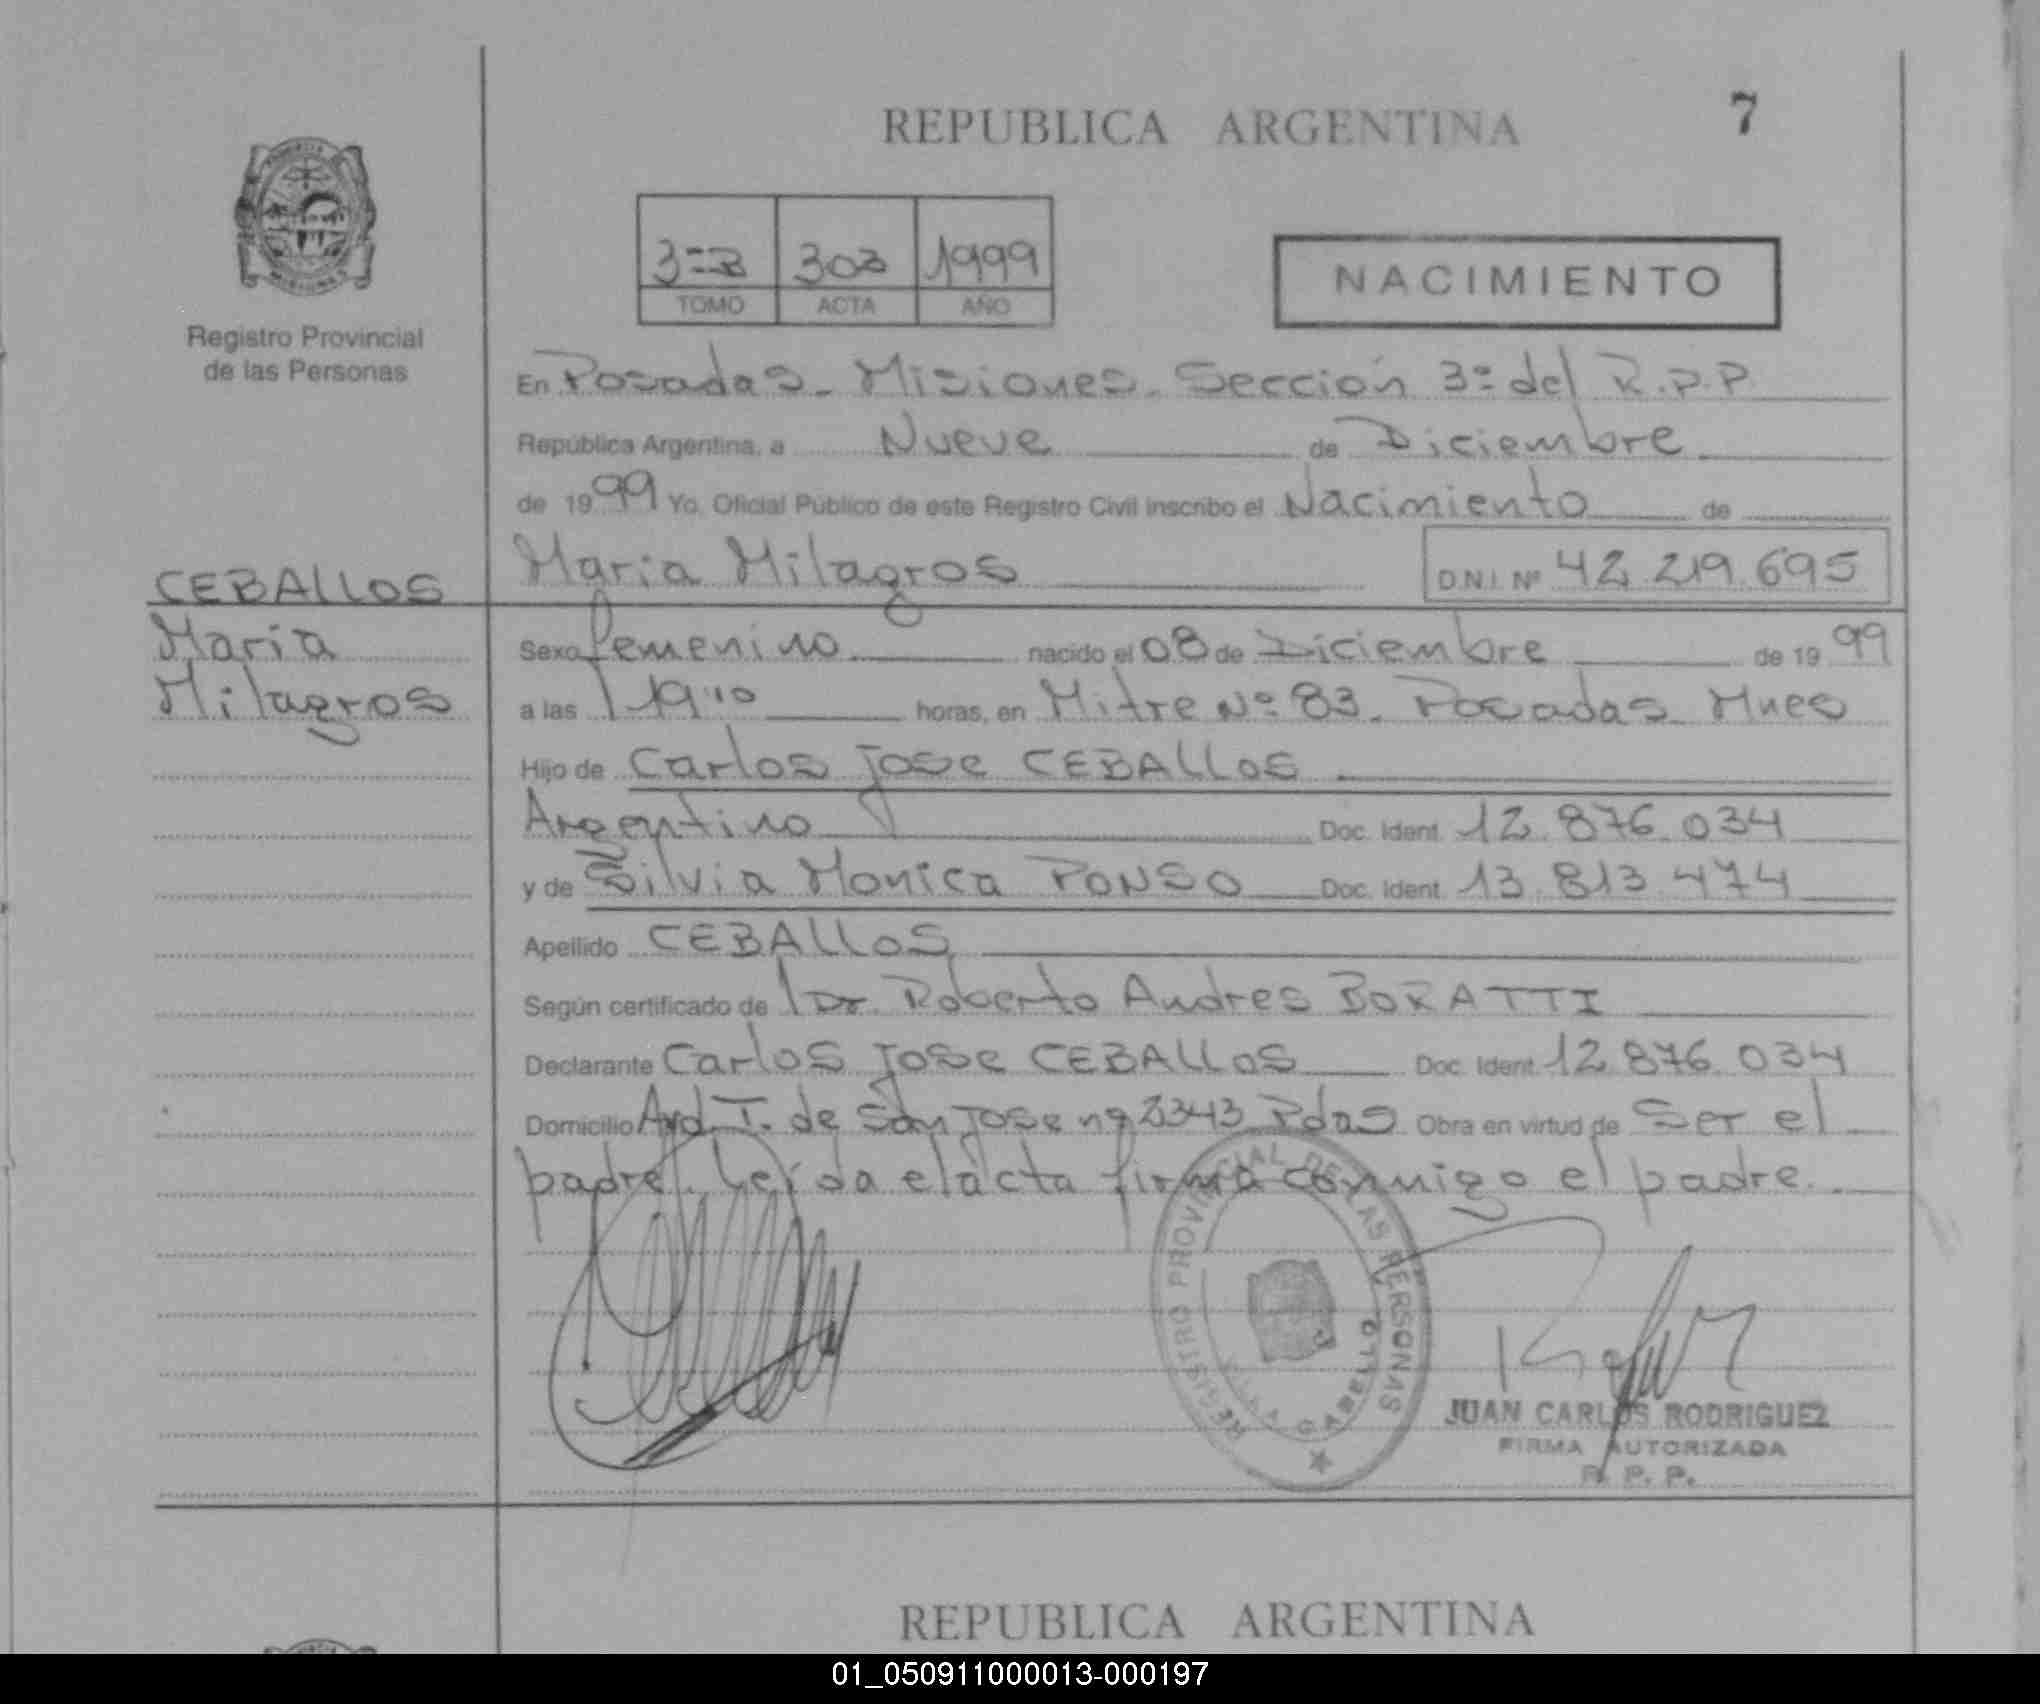 REPUBLICA ARGENTINA
7
3=B 303 1999
TOMO ACTA AÑO
NACIMIENTO
Registro Provincial
de las Personas
En Posadas - Misiones - Sección 3º del R.P.P
República Argentina, a Nueve de Diciembre
de 1999 Yo, Oficial Público de este Registro Civil inscribo el Nacimiento de
CEBALLOS
Maria Milagros
D.N.I. Nº 42.219.695
Maria
Milagros
Sexo femenino nacido el 08 de Diciembre de 1999
a las 19'10 horas, en Mitre Nº 83. Posadas Mnes
Hijo de Carlos Jose CEBALLOS
Argentino Doc. Ident. 12.876.034
y de Silvia Monica PONSO Doc. Ident. 13.813.474
Apellido CEBALLOS
Según certificado de Dr. Roberto Andres BORATTI
Declarante Carlos Jose CEBALLOS Doc. Ident. 12.876.034
Domicilio Avd. T. de San Jose nº 2343 Pdas Obra en virtud de Ser el
padre. Leída el acta firma conmigo el padre.
REGISTRO PROVINCIAL DE LAS PERSONAS
GABRIEL
JUAN CARLOS RODRIGUEZ
FIRMA AUTORIZADA
R. P. P.
REPUBLICA ARGENTINA
01_050911000013-000197